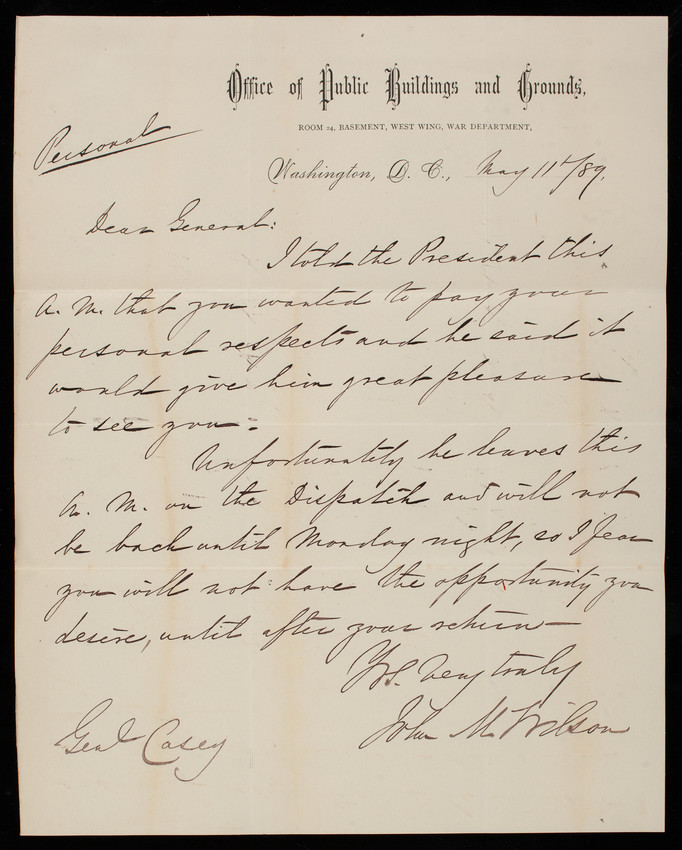 Office of Public Buildings and Grounds,
ROOM 24, BASEMENT, WEST WING, WAR DEPARTMENT,
Personal
Washington, D. C., May 11th/89.
Dear General:
I told the President this
A. M. that you wanted to pay your
personal respects and he said it
would give him great pleasure
to see you.
Unfortunately he leaves this
A. M. on the Dispatch and will not
be back until Monday night, so I fear
you will not have the opportunity you
desire, until after your return—
Yrs. very truly
John M Wilson
Genl Casey